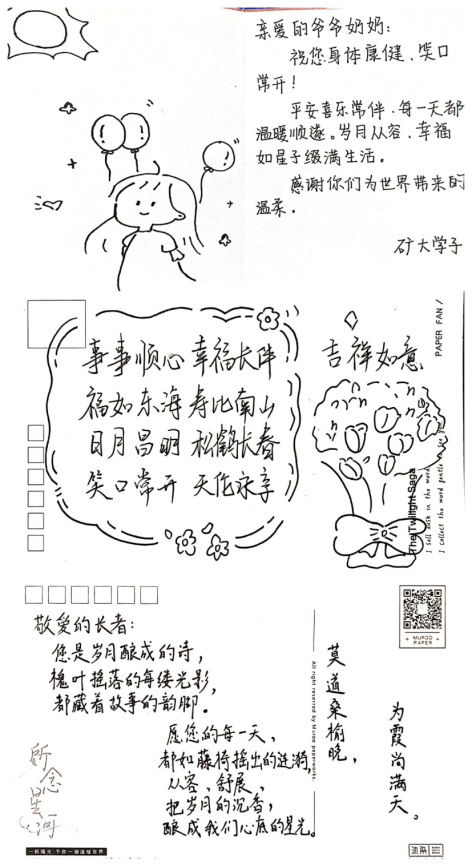 亲爱的爷爷奶奶:
祝您身体康健、笑口
常开!
平安喜乐常伴、每一天都
温暖顺遂。岁月从容、幸福
如星子缀满生活。
感谢你们为世界带来的
温柔。
矿大学子
事事顺心 幸福长伴
福如东海 寿比南山
日月昌明 松鹤长春
笑口常开 天伦永享
吉祥如意
PAPER FAN /
The Twilight Saga
I sell dusk in the word
敬爱的长者:
您是岁月酿成的诗,
槐叶摇落的每缕光影,
都藏着故事的韵脚。
愿您的每一天,
都如藤椅摇出的涟漪,
从容、舒展,
把岁月的沉香,
酿成我们心底的星光。
所念星河
All right reserved by Muroo paperworks.
莫道桑榆晚,
为霞尚满天。
+ MUROO +
PAPER